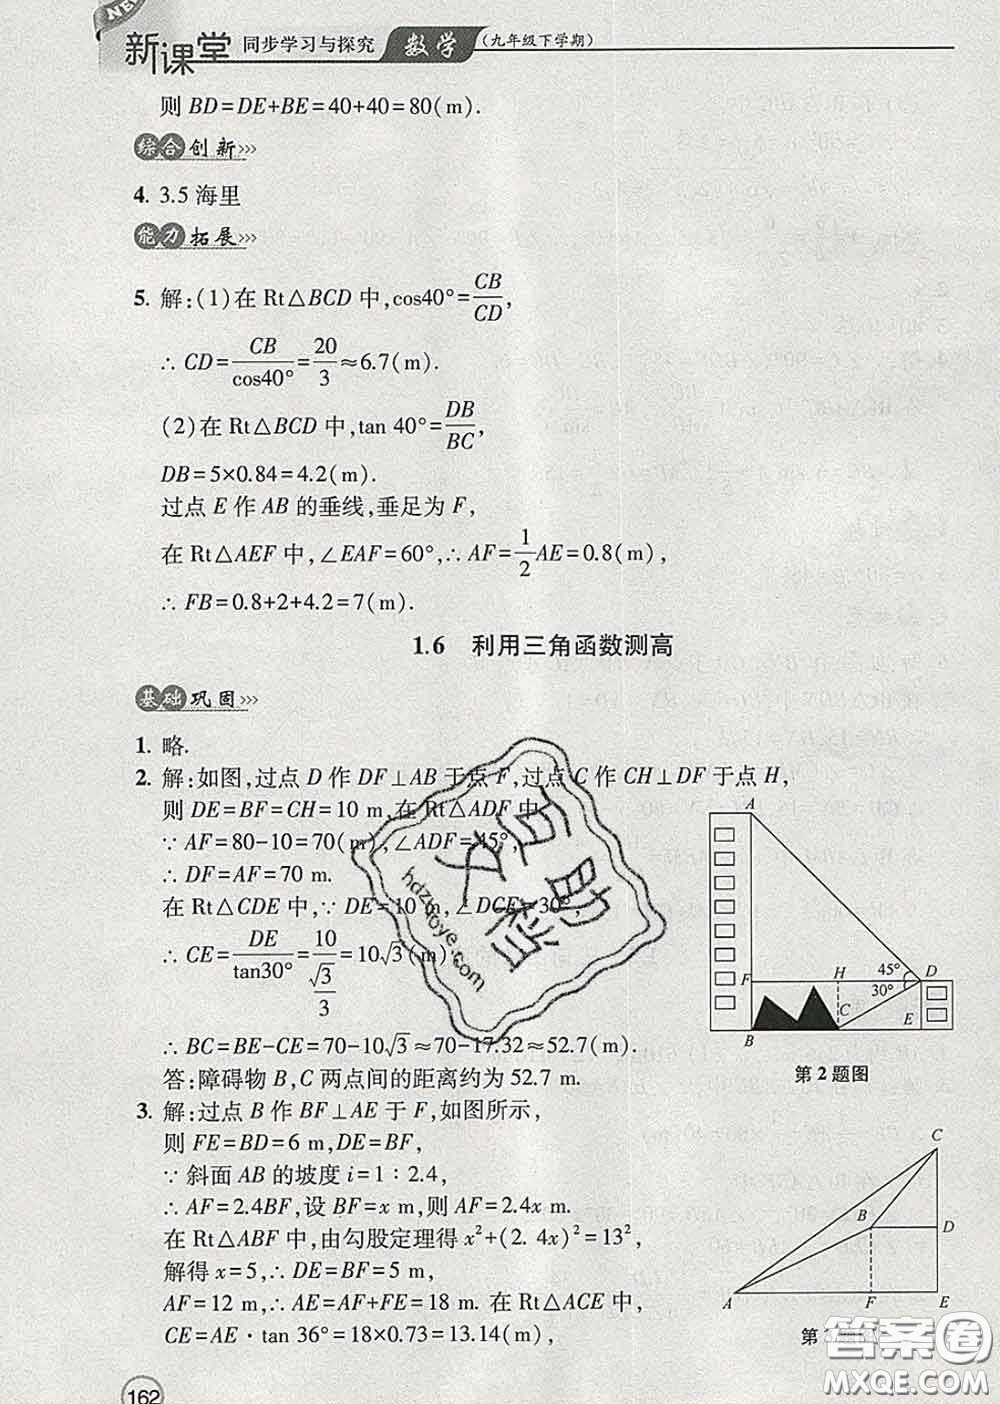 NEW
新课堂 同步学习与探究 数学 (九年级下学期)
则 BD=DE+BE=40+40=80(m).
综合创新>>>
4. 3.5 海里
能力拓展>>>
5. 解:(1)在 Rt△BCD 中,cos40°=CB/CD,
∴ CD=CB/cos40°=20/3≈6.7(m).
(2)在 Rt△BCD 中,tan 40°=DB/BC,
DB=5×0.84=4.2(m).
过点 E 作 AB 的垂线,垂足为 F,
在 Rt△AEF 中,∠EAF=60°,∴ AF=1/2AE=0.8(m),
∴ FB=0.8+2+4.2=7(m).
1.6 利用三角函数测高
基础巩固>>>
1. 略.
2. 解:如图,过点 D 作 DF⊥AB 于点 F,过点 C 作 CH⊥DF 于点 H,
则 DE=BF=CH=10 m,在 Rt△ADF 中,
∵ AF=80-10=70(m),∠ADF=45°,
∴ DF=AF=70 m.
在 Rt△CDE 中,∵ DE=10 m,∠DCE=30°,
∴ CE=DE/tan30°=10/(√3/3)=10√3(m),
∴ BC=BE-CE=70-10√3≈70-17.32≈52.7(m).
答:障碍物 B,C 两点间的距离约为 52.7 m.
A
F
H
45°
D
30°
C
E
B
第2题图
3. 解:过点 B 作 BF⊥AE 于 F,如图所示,
则 FE=BD=6 m,DE=BF,
∵ 斜面 AB 的坡度 i=1∶2.4,
∴ AF=2.4BF,设 BF=x m,则 AF=2.4x m.
在 Rt△ABF 中,由勾股定理得 x²+(2.4x)²=13²,
解得 x=5,∴ DE=BF=5 m,
AF=12 m,∴ AE=AF+FE=18 m. 在 Rt△ACE 中,
CE=AE·tan 36°=18×0.73=13.14(m),
C
B
D
A
F
E
162
作业互助
hdzuoye.com
答案圈
MXQE.COM